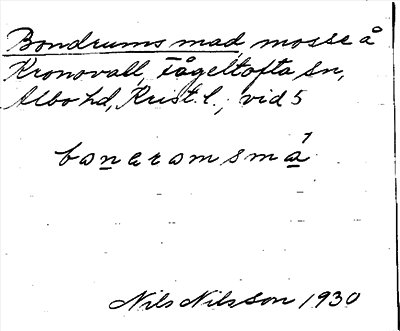 Bondrums mad, mosse å
Kronovall, Fågeltofta sn,
Albo hd, Krist. l., vid 5
bonaromsmá
Nils Nilsson 1930